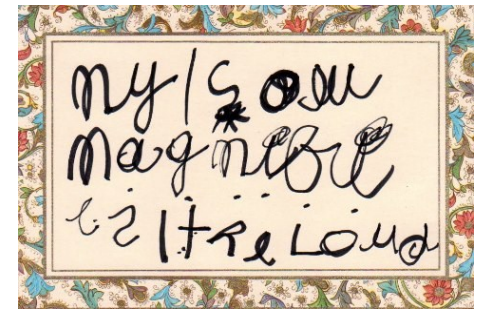 My Soul
magnifie
s the Lord